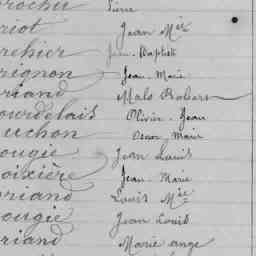 rocher Pierre
riot Jean Mie
rehier Jean-Baptiste
rignon Jean-Marie
riand Malo Robert
ourdelais Olivier-Jean
uchon Marie
ougie Jean Louis
oixière Jean-Marie
riand Louis Mie
ougie Jean Louis
riand Marie ange